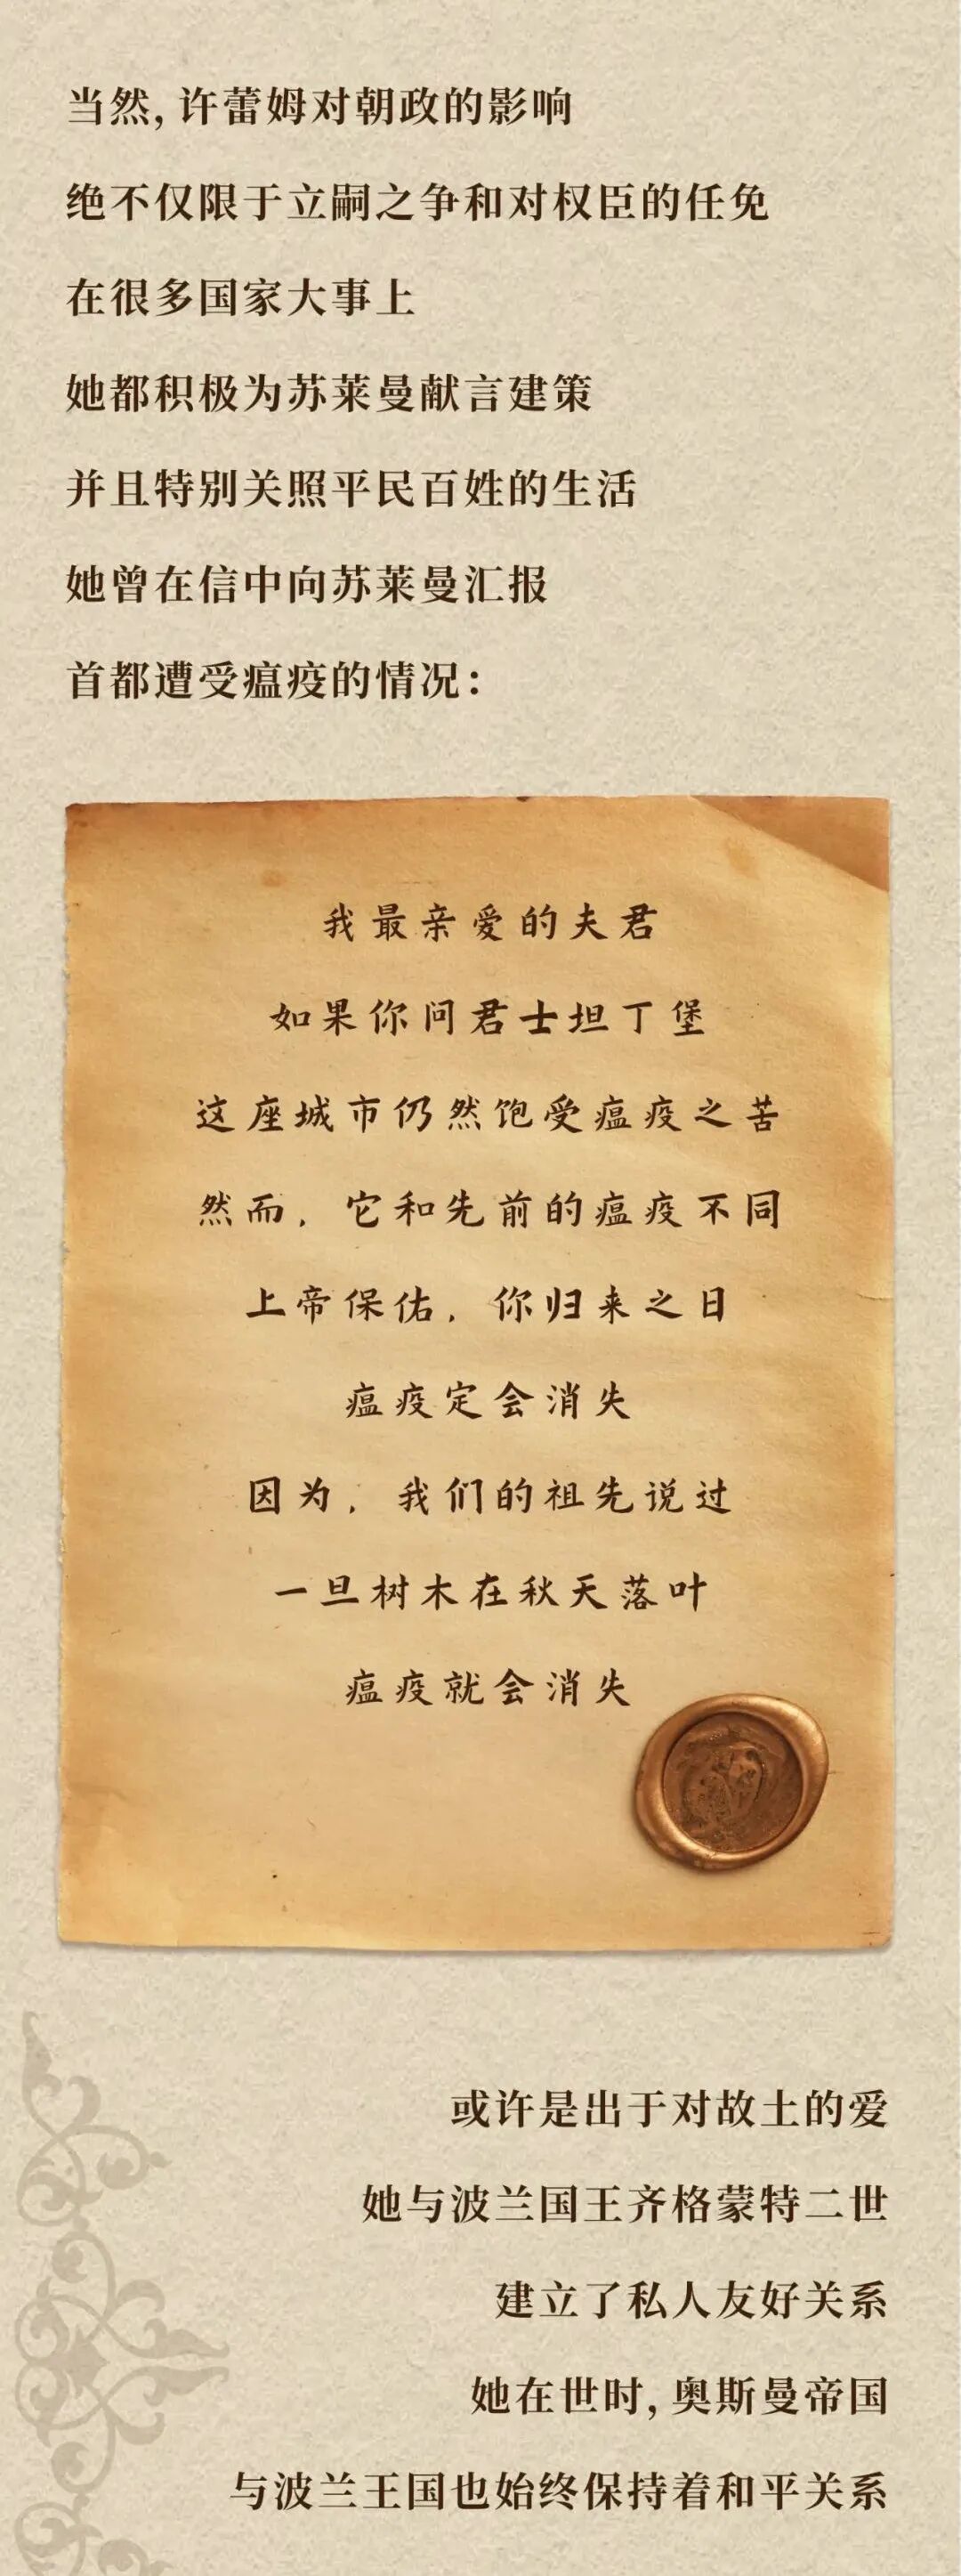 当然,许蕾姆对朝政的影响
绝不仅限于立嗣之争和对权臣的任免
在很多国家大事上
她都积极为苏莱曼献言建策
并且特别关照平民百姓的生活
她曾在信中向苏莱曼汇报
首都遭受瘟疫的情况：
我最亲爱的夫君
如果你问君士坦丁堡
这座城市仍然饱受瘟疫之苦
然而，它和先前的瘟疫不同
上帝保佑，你归来之日
瘟疫定会消失
因为，我们的祖先说过
一旦树木在秋天落叶
瘟疫就会消失
或许是出于对故土的爱
她与波兰国王齐格蒙特二世
建立了私人友好关系
她在世时,奥斯曼帝国
与波兰王国也始终保持着和平关系